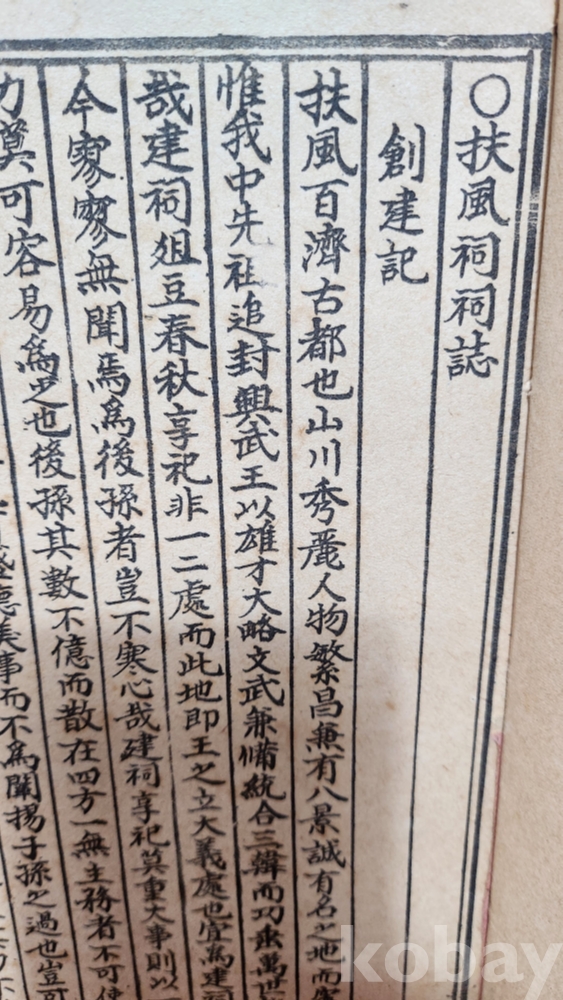 ○扶風祠祠誌
創建記
扶風百濟古都也山川秀麗人物繁昌兼有八景誠有名之地而
惟我中先祖追封興武王以雄才大略文武兼備統合三韓而功垂萬世
哉建祠俎豆春秋享祀非一二處而此地即王之立大義處也宜爲建祠
今寥寥無聞焉爲後孫者豈不寒心哉建祠享祀莫重大事則以
力奠可容易爲之也後孫其數不億而散在四方一無主務者不可使
德美事而不爲闡揚子孫之過也豈可
kobay